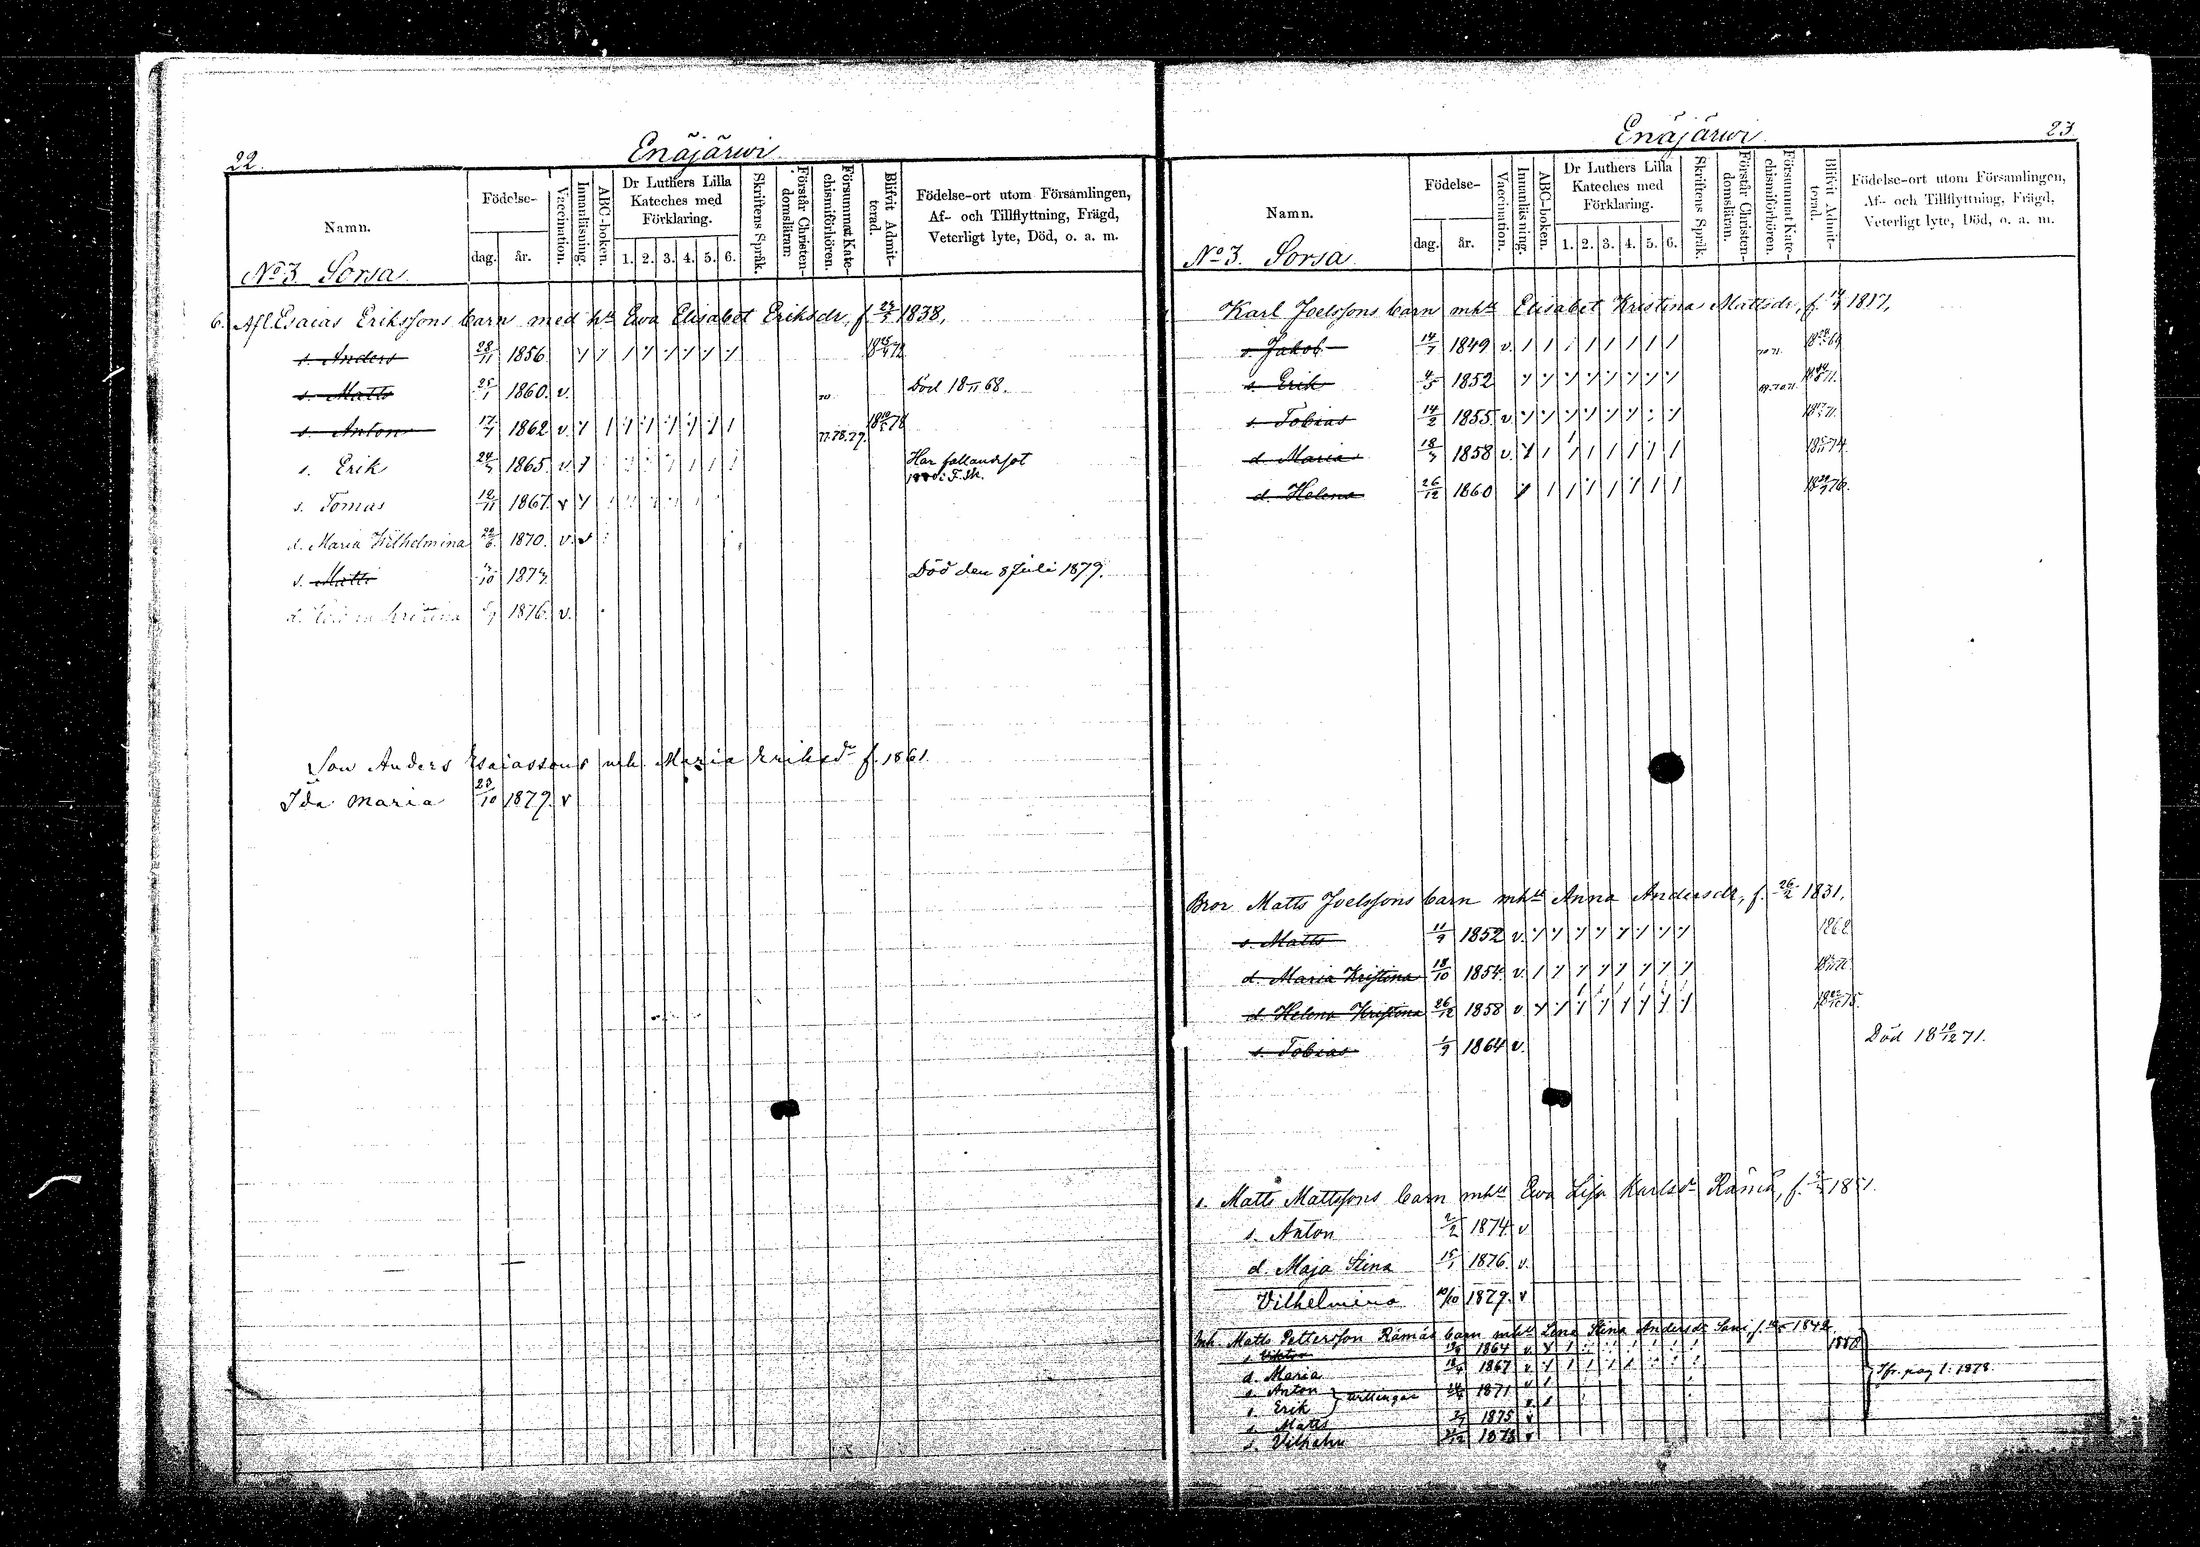 22.
Enäjärwi
Namn.
Födelse-
dag. år.
Vaccination.
Innanläsning.
ABC-boken.
Dr Luthers Lilla Kateches med Förklaring.
1. 2. 3. 4. 5. 6.
Skriftens Språk.
Förstår Christendomsläran.
Försummat Katechismiförhören.
Blifvit Admitterad.
Födelse-ort utom Församlingen,
Af- och Tillflyttning, Frägd,
Veterligt lyte, Död, o. a. m.
No 3. Sorsa
6. Afl. Esaias Erikssons barn med hu Ewa Elisabet Eriksdr, f. 1838,
s. Anders 28/11 1856
s. Matts 25/1 1860. v. Död 18 68.
s. Anton 17/7 1862 v. 77.78.79.
s. Erik 24/7 1865. v. Har fallandsot
s. Tomas 1867. v
d. Maria Wilhelmina 1870. v. v
s. Matti Död den 8 Juli 1879.
d. Kristina 1876. v.
Son Anders Esaiassons Maria Eriksdr f. 1861.
Ida Maria 23/10 1879. v
Enäjärwi
23
Namn.
Födelse-
dag. år.
Vaccination.
Innanläsning.
ABC-boken.
Dr Luthers Lilla
Kateches med
Förklaring.
1. 2. 3. 4. 5. 6.
Skriftens Språk.
Förstår Christendomsläran.
Försummat Katechismiförhören.
Blifvit Admitterad.
Födelse-ort utom Församlingen,
Af- och Tillflyttning, Frägd,
Veterligt lyte, Död, o. a. m.
No 3. Sorsa
Karl Joelssons barn mhu Elisabet Kristina Mattsdr, f. 1817,
s. Jakob 14/7 1849 v.
s. Erik 4/5 1852
s. Tobias 14/2 1855. v.
d. Maria 18/3 1858 v.
d. Helena 26/12 1860
Bror Matts Joelssons barn mhu Anna Andersdr, f. 26/2 1831,
s. Matts 11/9 1852 v.
d. Maria Kristina 18/10 1854. v.
d. Helena Kristina 26/12 1858 v
s. Tobias 1/9 1864 v. Död 18 10/12 71.
s. Matts Mattssons barn mhu Ewa Lisa Karlsdr Rämä, f. 1851.
s. Anton 2/2 1874. v
d. Maja Stina 15/1 1876. v.
Vilhelmina 10/10 1879. v
Inh. Matts Pettersson Rämäs barn mhu Lena Stina Andersdr f. 1842
s. Viktor 1864 v. 1880
d. Maria 1867 v.
s. Anton tvillingar 1871 v
s. Erik
s. Matts 1875 v
s. Vilhelm 1878 v
Jfr. pag 1: 1878.